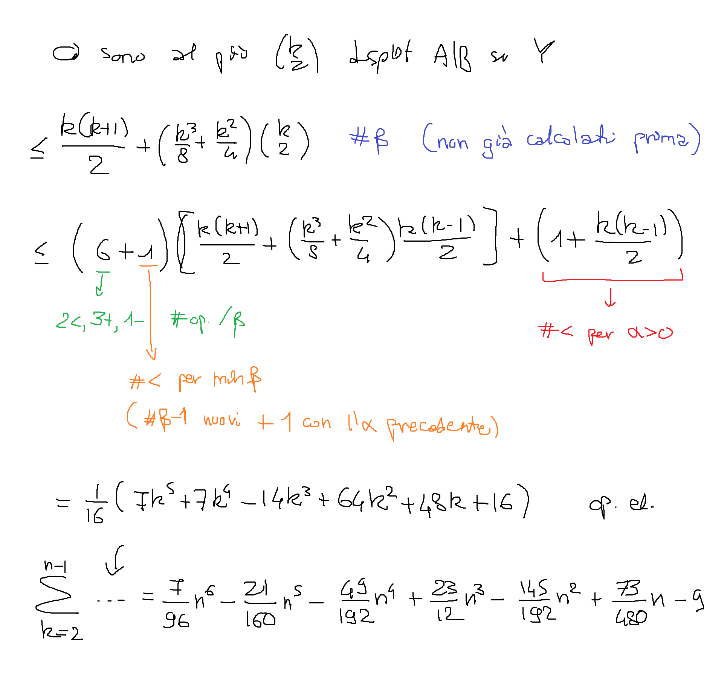 sono al più (k 2) dsplit A|B su Y
≤ k(k+1)/2 + (k³/8 + k²/4)(k 2) #β (non già calcolati prima)
≤ (6+1)[k(k+1)/2 + (k³/8 + k²/4) k(k-1)/2] + (1 + k(k-1)/2)
2<, 3+, 1- #op./β
#< per α>0
#< per min β
(#β-1 nuovi + 1 con l'α precedente)
= 1/16 (7k⁵ + 7k⁴ - 14k³ + 64k² + 48k + 16) op. el.
∑_{k=2}^{n-1} ... = 7/96 n⁶ - 21/160 n⁵ - 49/192 n⁴ + 23/12 n³ - 145/192 n² + 73/480 n - 9